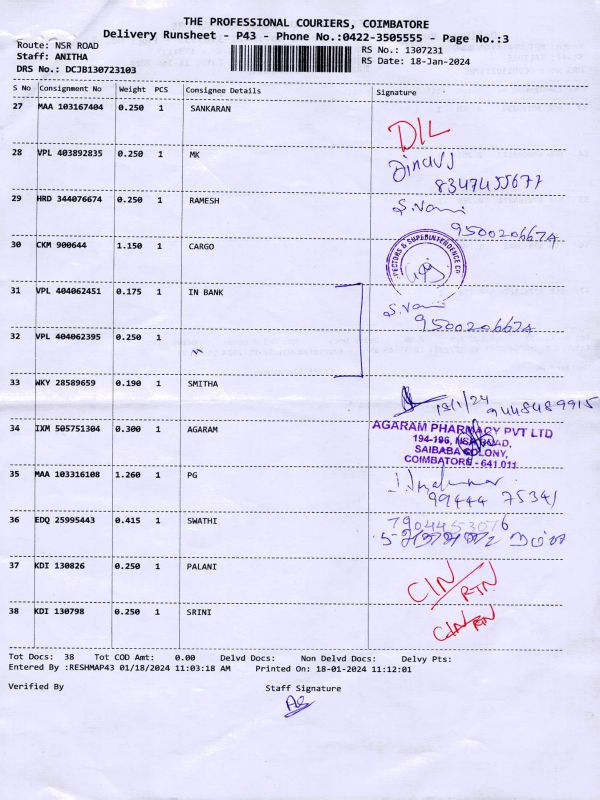 THE PROFESSIONAL COURIERS, COIMBATORE
Delivery Runsheet - P43 - Phone No.:0422-3505555 - Page No.:3
Route: NSR ROAD
RS No.: 1307231
Staff: ANITHA
RS Date: 18-Jan-2024
DRS No.: DCJB130723103
S No Consignment No Weight PCS Consignee Details Signature
27 MAA 103167404 0.250 1 SANKARAN
D/L
28 VPL 403892835 0.250 1 MK
8347455677
29 HRD 344076674 0.250 1 RAMESH
S. Vani
9500206674
30 CKM 900644 1.150 1 CARGO
PECTORS & SUPERINTENDENCE CO
31 VPL 404062451 0.175 1 IN BANK
S. Vani
9500206674
32 VPL 404062395 0.250 1 "
33 WKY 28589659 0.190 1 SMITHA
18/1/24 9448489915
34 IXM 505751304 0.300 1 AGARAM
AGARAM PHARMACY PVT LTD
194-196, NSR ROAD,
SAIBABA COLONY,
COIMBATORE - 641 011
35 MAA 103316108 1.260 1 PG
99444 75341
36 EDQ 25995443 0.415 1 SWATHI
7904453076
37 KDI 130826 0.250 1 PALANI
CIN/RTN
38 KDI 130798 0.250 1 SRINI
CIN RTN
Tot Docs: 38 Tot COD Amt: 0.00 Delvd Docs: Non Delvd Docs: Delvy Pts:
Entered By :RESHMAP43 01/18/2024 11:03:18 AM Printed On: 18-01-2024 11:12:01
Verified By Staff Signature